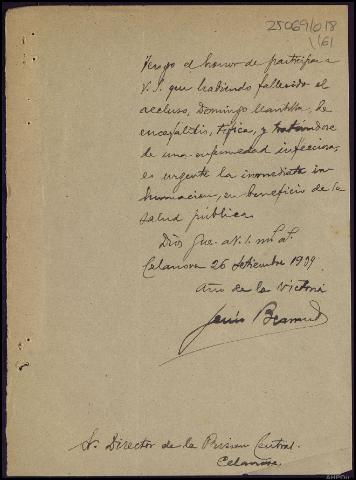 25069/018
\161
Tengo el honor de participar a
V.S. que habiendo fallecido el
recluso, Domingo Mantilla, de
encefalitis, tífica, y tratándose
de una enfermedad infecciosa,
es urgente la inmediata in-
humacion, en beneficio de la
salud pública.
Dios gue. a V.S. ms. as.
Celanova 26 Setiembre 1939
Año de la Victoria
Jesús
Sr. Director de la Prision Central.
Celanova.